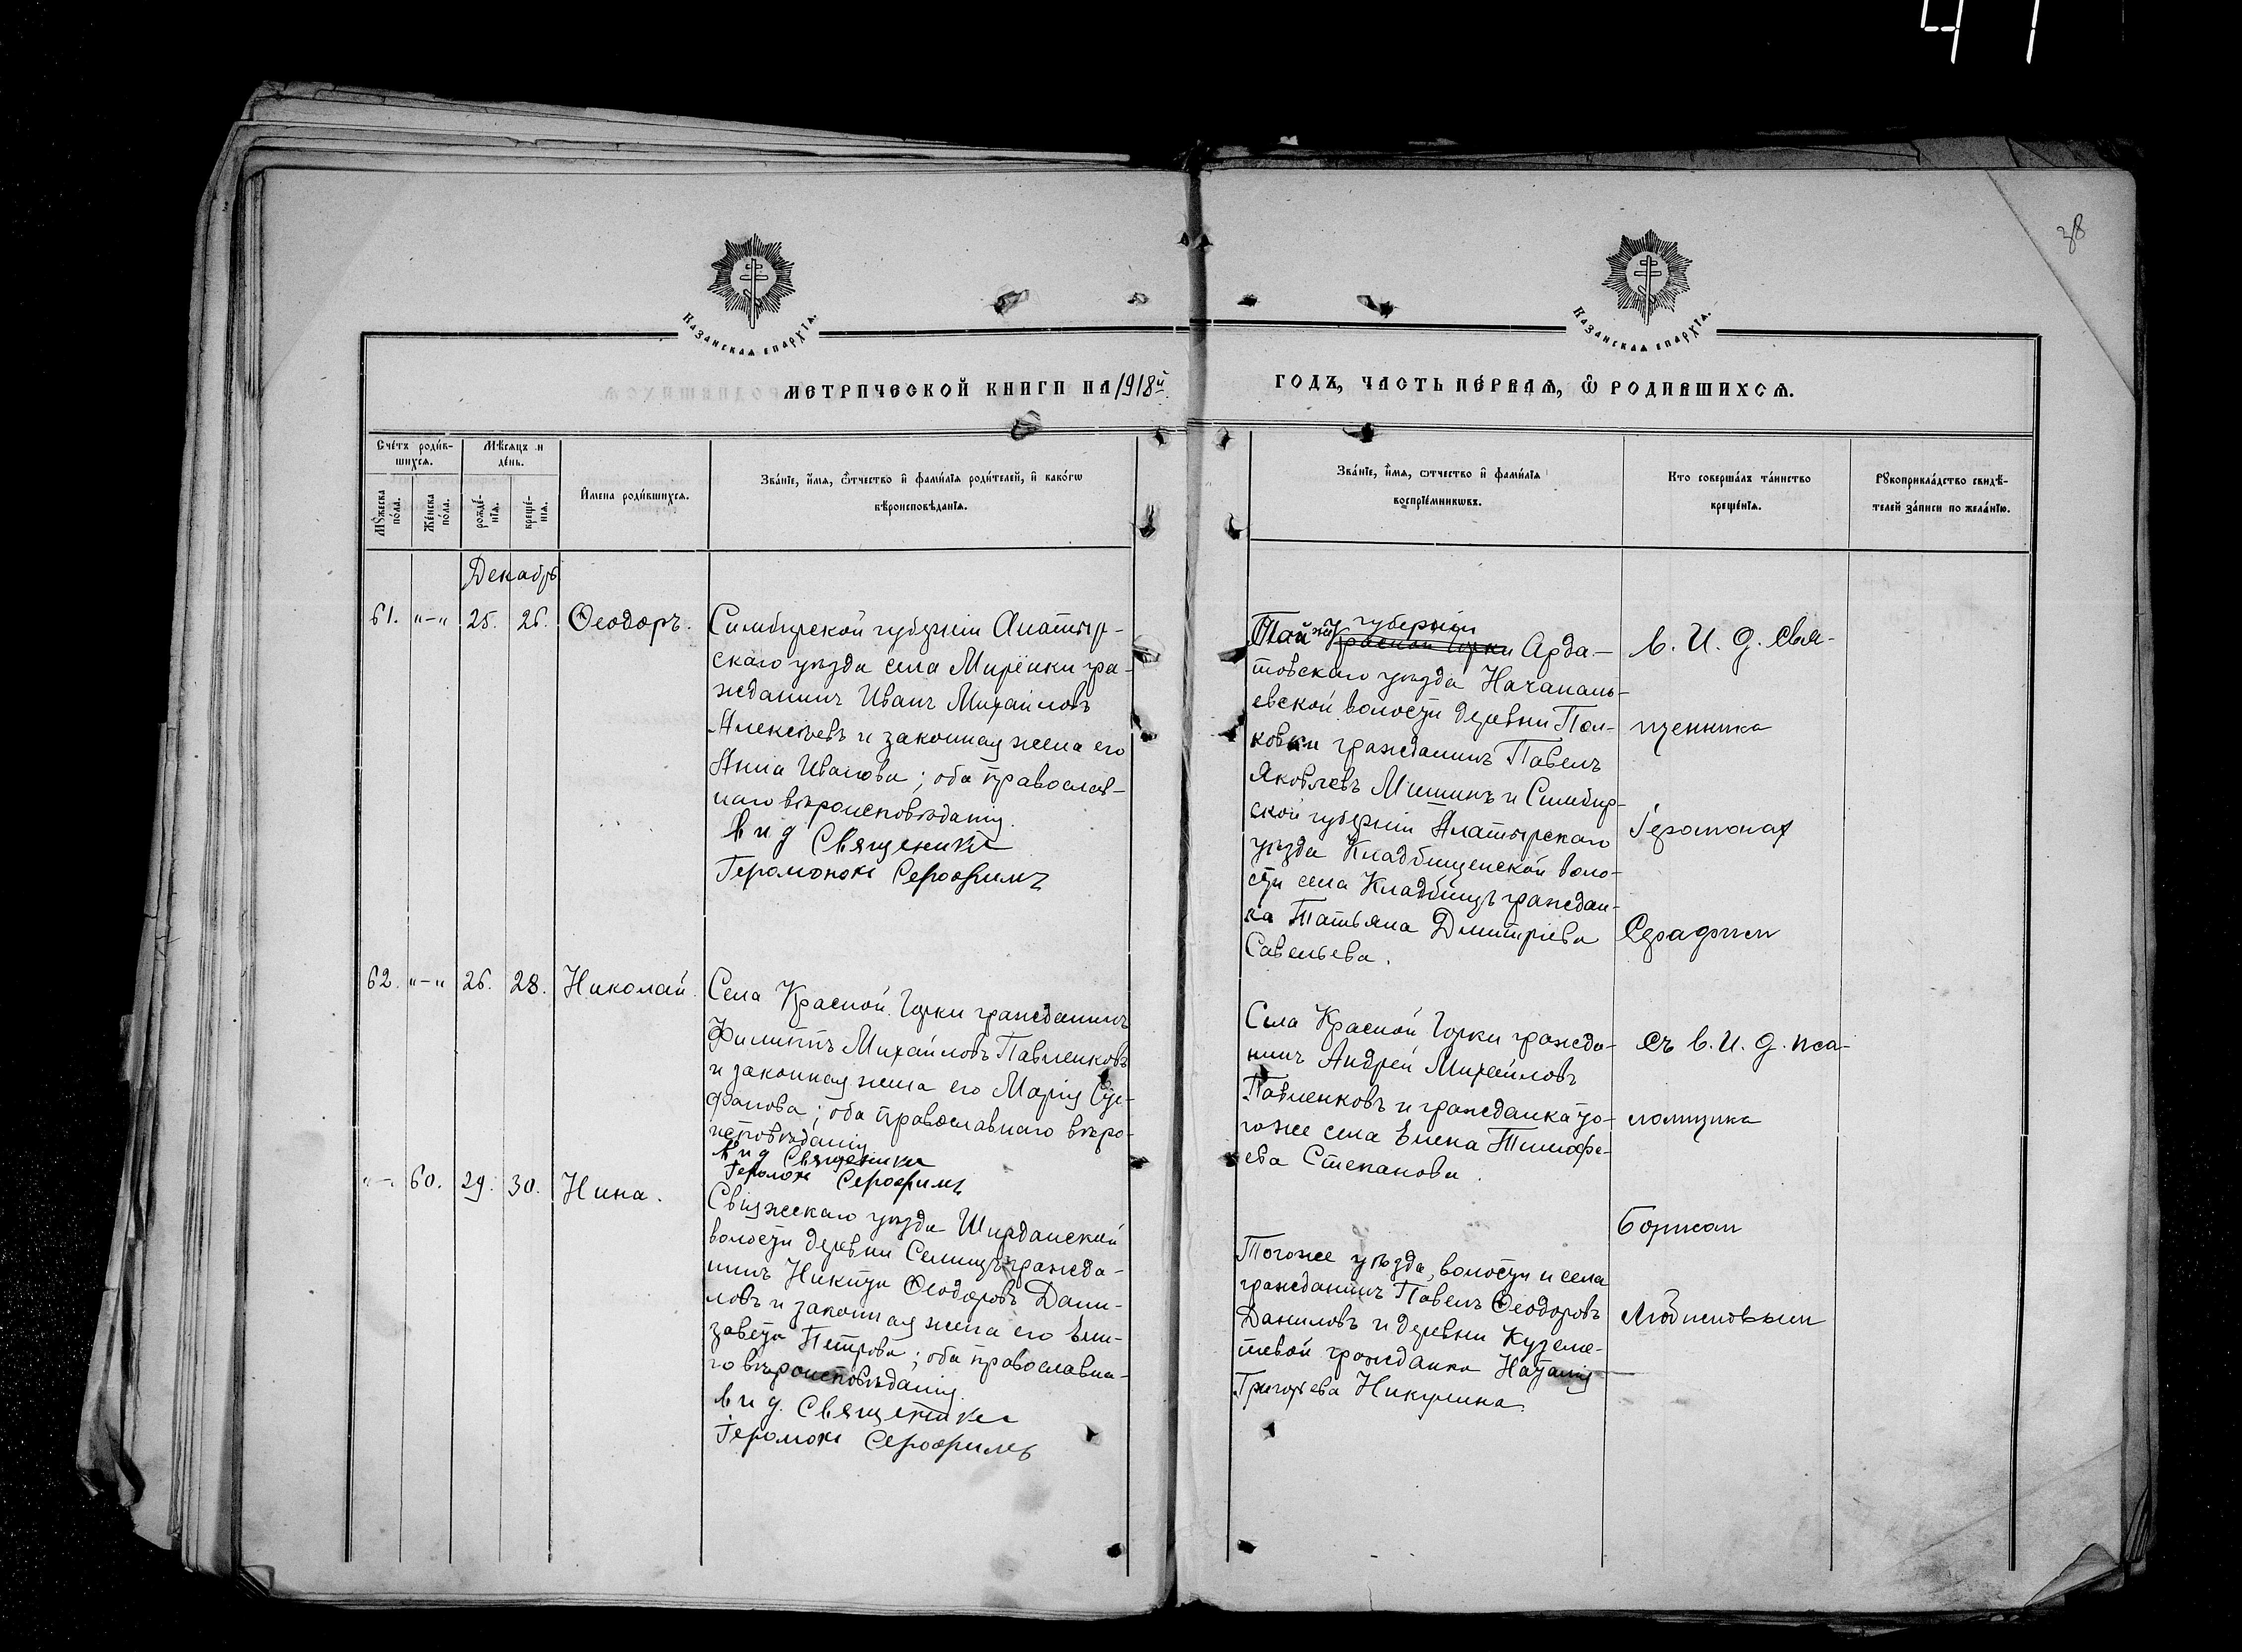 41
38
Казанская епархія.
Казанская епархія.
Метрической книги на 1918й
годъ, часть первая, ѡ родившихся.
Счетъ родив-
шихся.
Мѣсяцъ и
день.
Мужеска
пола.
Женска
пола.
рожде-
нія.
креще-
нія.
Имена родившихся.
Званіе, имя, ѡтчество и фамилія родителей, и какогѡ
вѣроисповѣданія.
Званіе, имя, ѡтчество и фамилія
воспріемникѡвъ.
Кто совершалъ таинство
крещенія.
Рукоприкладство свидѣ-
телей записи по желанію.
Декабрь
61. "-" 25. 26. Ѳеодоръ.
Симбирской губерніи Алатыр-
скаго уѣзда села Мирёнки гра-
жданинъ Иванъ Михайловъ
Алексѣевъ и законная жена его
Анна Иванова; оба православ-
наго вѣроисповѣданія.
в и д Священника
Іеромонахъ Серафимъ
Той же губерніи
Красной Горки Арда-
товскаго уѣзда
евской волости деревни Пол-
ковки гражданинъ Павелъ
Яковлевъ Мишинъ и Симбир-
ской губерніи Алатырскаго
уѣзда Кладбищенской воло-
сти села Кладбищъ граждан-
ка Татьяна Димитріева
Савельева.
в. и. д. свя-
щенника
Іеромонах
Серафим
62. "-" 26. 28. Николай.
Села Красной Горки гражданинъ
Филиппъ Михайловъ Павленковъ
и законная жена его Марія Сте-
фанова; оба православнаго вѣро-
исповѣданія
в и д Священника
Іеромонахъ Серафимъ
Села Красной Горки гражда-
нинъ Андрей Михайловъ
Павленковъ и гражданка то-
гоже села Елена Тимофе-
ева Степанова.
съ в. и. д. пса-
ломщика
"-" 60. 29. 30. Нина.
Свіяжскаго уѣзда Ширданской
волости деревни Селищъ гражда-
нинъ Никита Ѳеодоровъ Дани-
ловъ и законная жена его Ели-
завета Петрова; оба православна-
го вѣроисповѣданія.
в и д. Священника
Іеромонахъ Серафимъ
Тогоже уѣзда, волости и села
гражданинъ Павелъ Ѳеодоровъ
Даниловъ и деревни Куземе-
тевой гражданка Наталія
Григорьева Никулина.